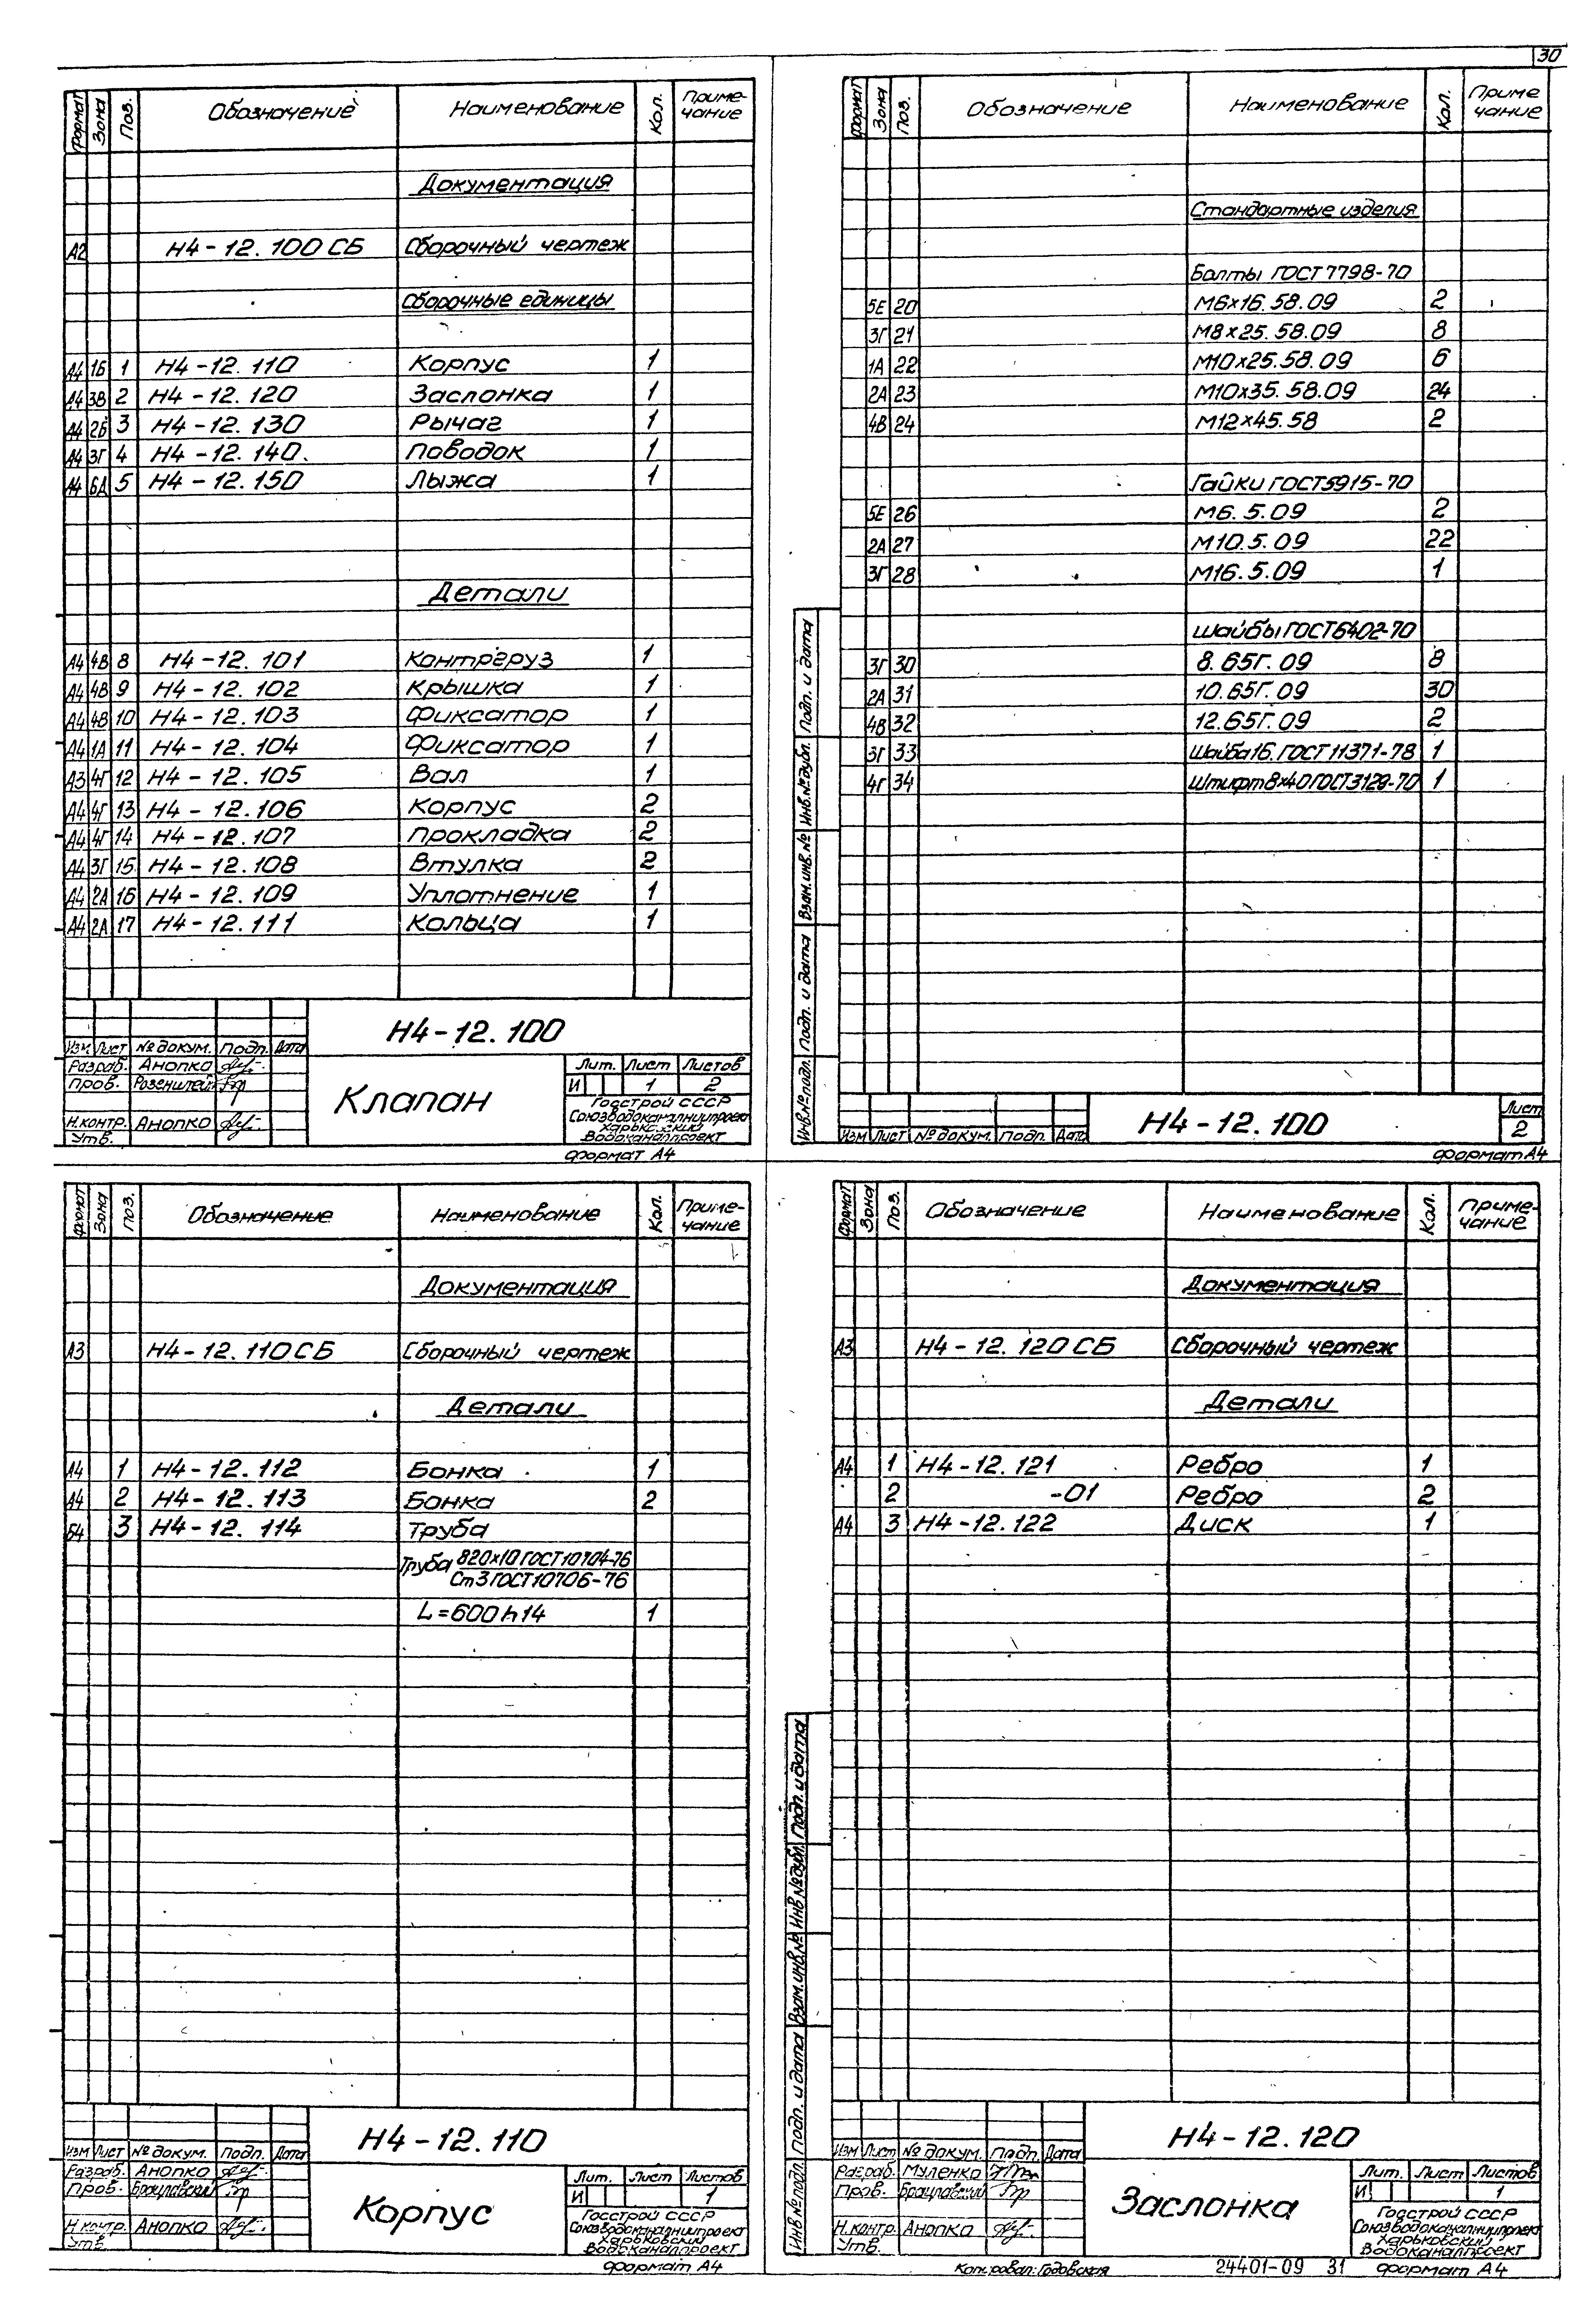 30
Формат Зона Поз. Обозначение Наименование Кол. Приме-чание
Документация
А2 Н4-12.100 СБ Сборочный чертеж
Сборочные единицы
А4 1Б 1 Н4-12.110 Корпус 1
А4 3В 2 Н4-12.120 Заслонка 1
А4 2Б 3 Н4-12.130 Рычаг 1
А4 3Г 4 Н4-12.140. Поводок 1
А4 6Д 5 Н4-12.150 Лыжа 1
Детали
А4 4В 8 Н4-12.101 Контргруз 1
А4 4В 9 Н4-12.102 Крышка 1
А4 4В 10 Н4-12.103 Фиксатор 1
А4 1А 11 Н4-12.104 Фиксатор 1
А3 4Г 12 Н4-12.105 Вал 1
А4 4Г 13 Н4-12.106 Корпус 2
А4 4Г 14 Н4-12.107 Прокладка 2
А4 3Г 15 Н4-12.108 Втулка 2
А4 2А 16 Н4-12.109 Уплотнение 1
А4 2А 17 Н4-12.111 Кольца 1
Н4-12.100
Изм Лист № докум. Подп. Дата
Разраб. Анопко
Пров.
Н.контр. Анопко
Утв.
Клапан
Лит. Лист Листов
И 1 2
Госстрой СССР
Союзводоканалниипроект
Харьковский
Водоканалпроект
Формат А4
Формат Зона Поз. Обозначение Наименование Кол. Приме чание
Стандартные изделия
Болты ГОСТ 7798-70
5Е 20 М6х16.58.09 2
3Г 21 М8х25.58.09 8
1А 22 М10х25.58.09 6
2А 23 М10х35.58.09 24
4В 24 М12х45.58 2
Гайки ГОСТ5915-70
5Е 26 М6.5.09 2
2А 27 М10.5.09 22
3Г 28 М16.5.09 1
Шайбы ГОСТ6402-70
3Г 30 8.65Г.09 8
2А 31 10.65Г.09 30
4В 32 12.65Г.09 2
3Г 33 Шайба16.ГОСТ11371-78 1
4Г 34 Штифт8х40ГОСТ3128-70 1
Инв.№подл. Подп. и дата Взам.инв.№ Инв.№дубл. Подп. и дата
Изм Лист № докум. Подп. Дата
Н4-12.100
Лист
2
Формат А4
Формат Зона Поз. Обозначение Наименование Кол. Приме-чание
Документация
А3 Н4-12.110 СБ Сборочный чертеж
Детали
А4 1 Н4-12.112 Бонка 1
А4 2 Н4-12.113 Бонка 2
Б4 3 Н4-12.114 Труба
Труба 820х10 ГОСТ10704-76
Ст3 ГОСТ10706-76
L=600h14 1
Н4-12.110
Изм Лист № докум. Подп. Дата
Разраб. Анопко
Пров. Брацлавский
Н.контр. Анопко
Утв.
Корпус
Лит. Лист Листов
И 1
Госстрой СССР
Союзводоканалниипроект
Харьковский
Водоканалпроект
Формат А4
Формат Зона Поз. Обозначение Наименование Кол. Приме-чание
Документация
А3 Н4-12.120 СБ Сборочный чертеж
Детали
А4 1 Н4-12.121 Ребро 1
2 -01 Ребро 2
А4 3 Н4-12.122 Диск 1
Инв№подл. Подп. и дата Взам.инв.№ Инв№дубл. Подп. и дата
Н4-12.120
Изм Лист № докум. Подп. Дата
Разраб. Муленко
Пров. Брацлавский
Н.контр. Анопко
Утв.
Заслонка
Лит. Лист Листов
И 1
Госстрой СССР
Союзводоканалниипроект
Харьковский
Водоканалпроект
Копировал: Годовская 24401-09 31 Формат А4